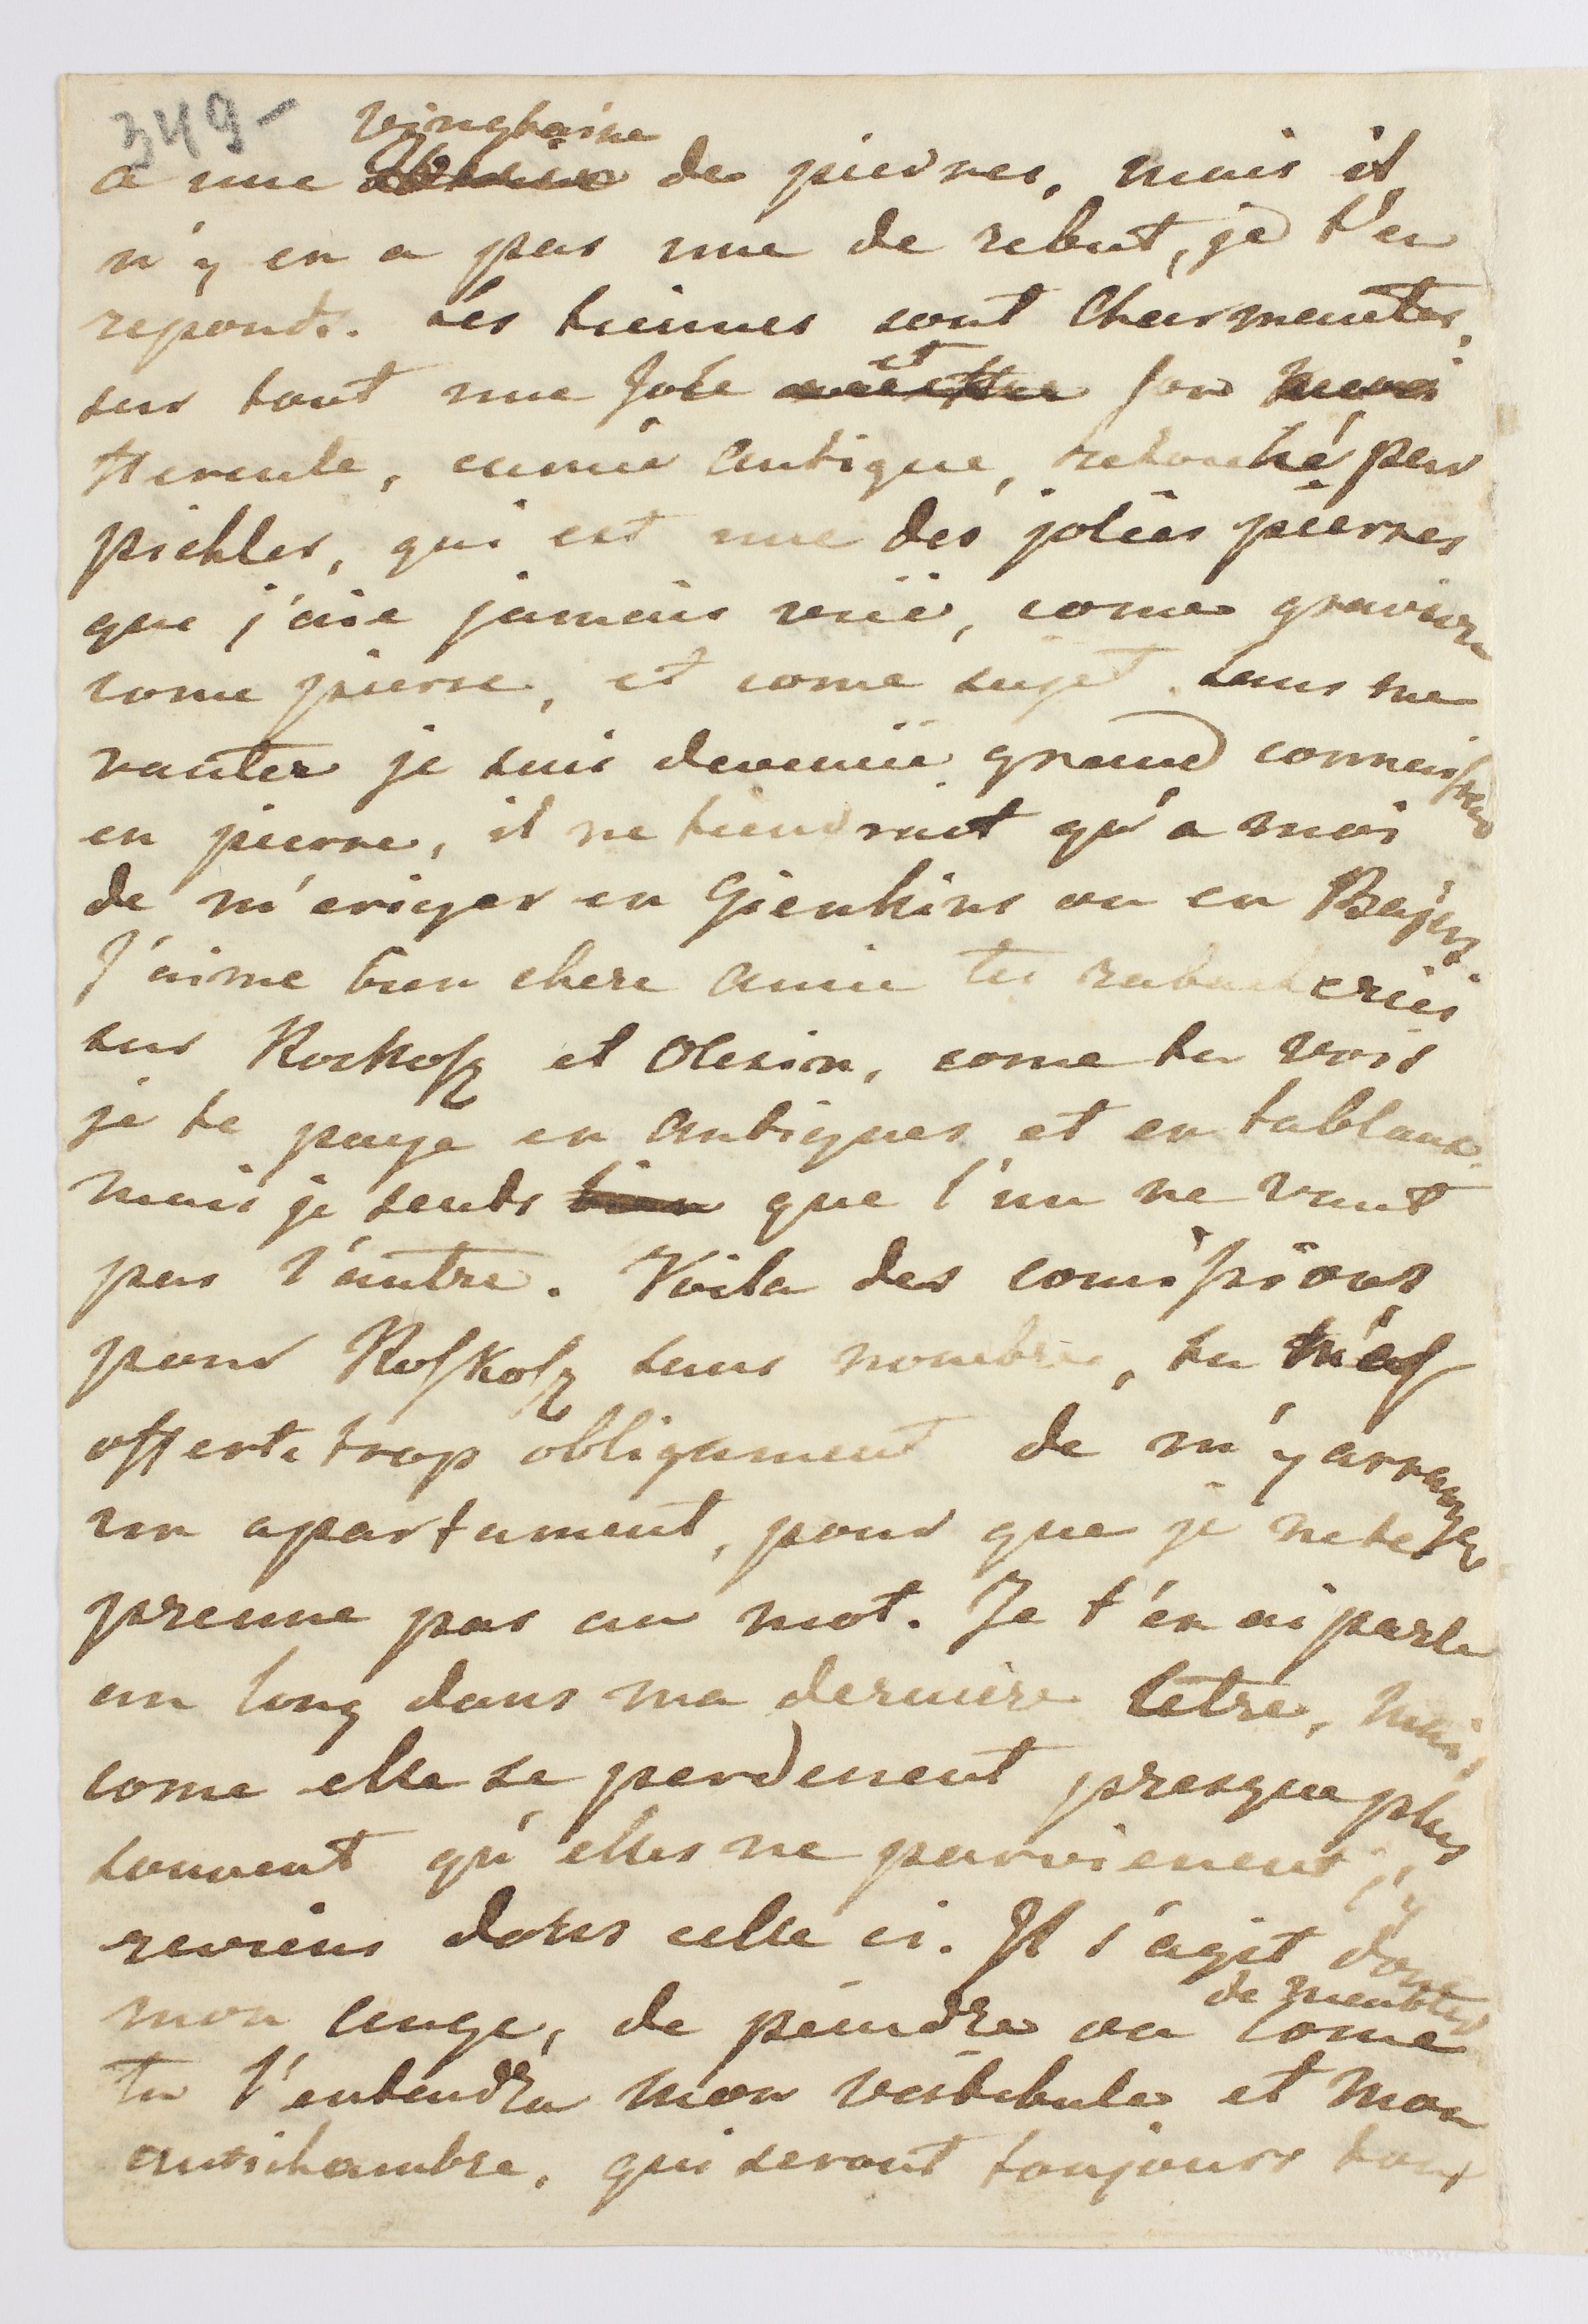 349-
vingtaine
a une de pierres, mais il
n'y en a pas une de rebut, je t'en
reponds. Les tiennes sont Charmantes,
sur tout une Jole et pour moi
Hercule, camé antique, retouché par
pichler, qui est une des jolies pierres
que j'aie jamais vüe, come gravure
come pierre, et come sujet. Sans me
vanter je suis devenüe grand connaisseur
en pierre, il ne tiendrait qu'a moi
de m'eriger en Gienkins ou en Bajers
J'aime bien chere amie tes rabacheries
sur Koskosz et Olesin, come tu vois
je te paye en antiques et en tableaux
mais je sents bien que l'un ne vaut
pas l'autre. Voila des comissions
pour Koskosz sans nombre, tu m'as
offerte trop obligament de m'y arranger
un apartament, pour que je ne te
prenne pas au mot. Je t'en ai parle
au long dans ma derniere letre, mais
come elle se perdenent presque plus
souvent qu'elles ne parvienent, j'y
reviens dans celle ci. Il s'agit donc
de meubler
mon ange, de peindre ou come
tu l'entendra mon vestibule et mon
antichambre, qui seront toujours tout